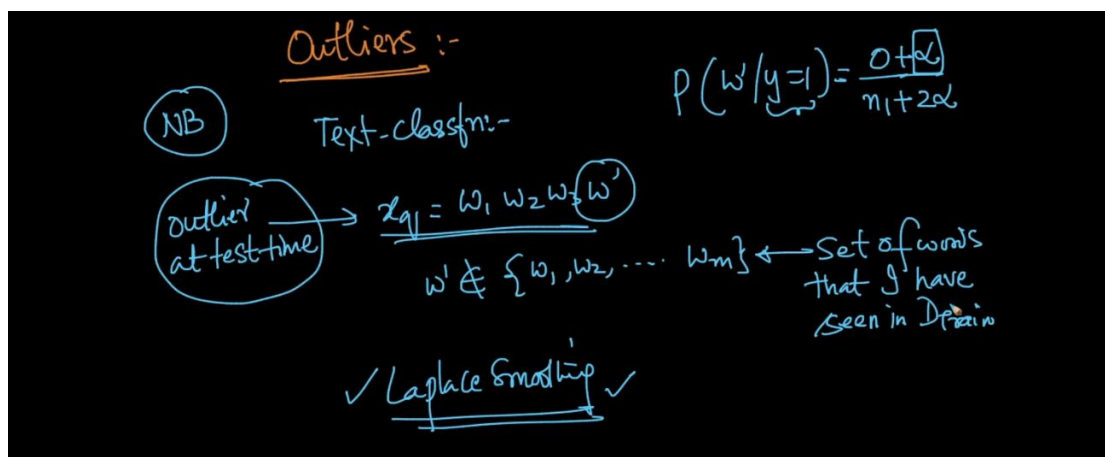 Outliers :-
P(w'/y=1) = 0+α / n1+2α
NB
Text-classfn:-
outlier
at test-time
xq = w1 w2 w3 w'
w' ∉ {w1, w2, .... wm}
Set of words
that I have
seen in Dtrain
✓ Laplace Smoothing ✓